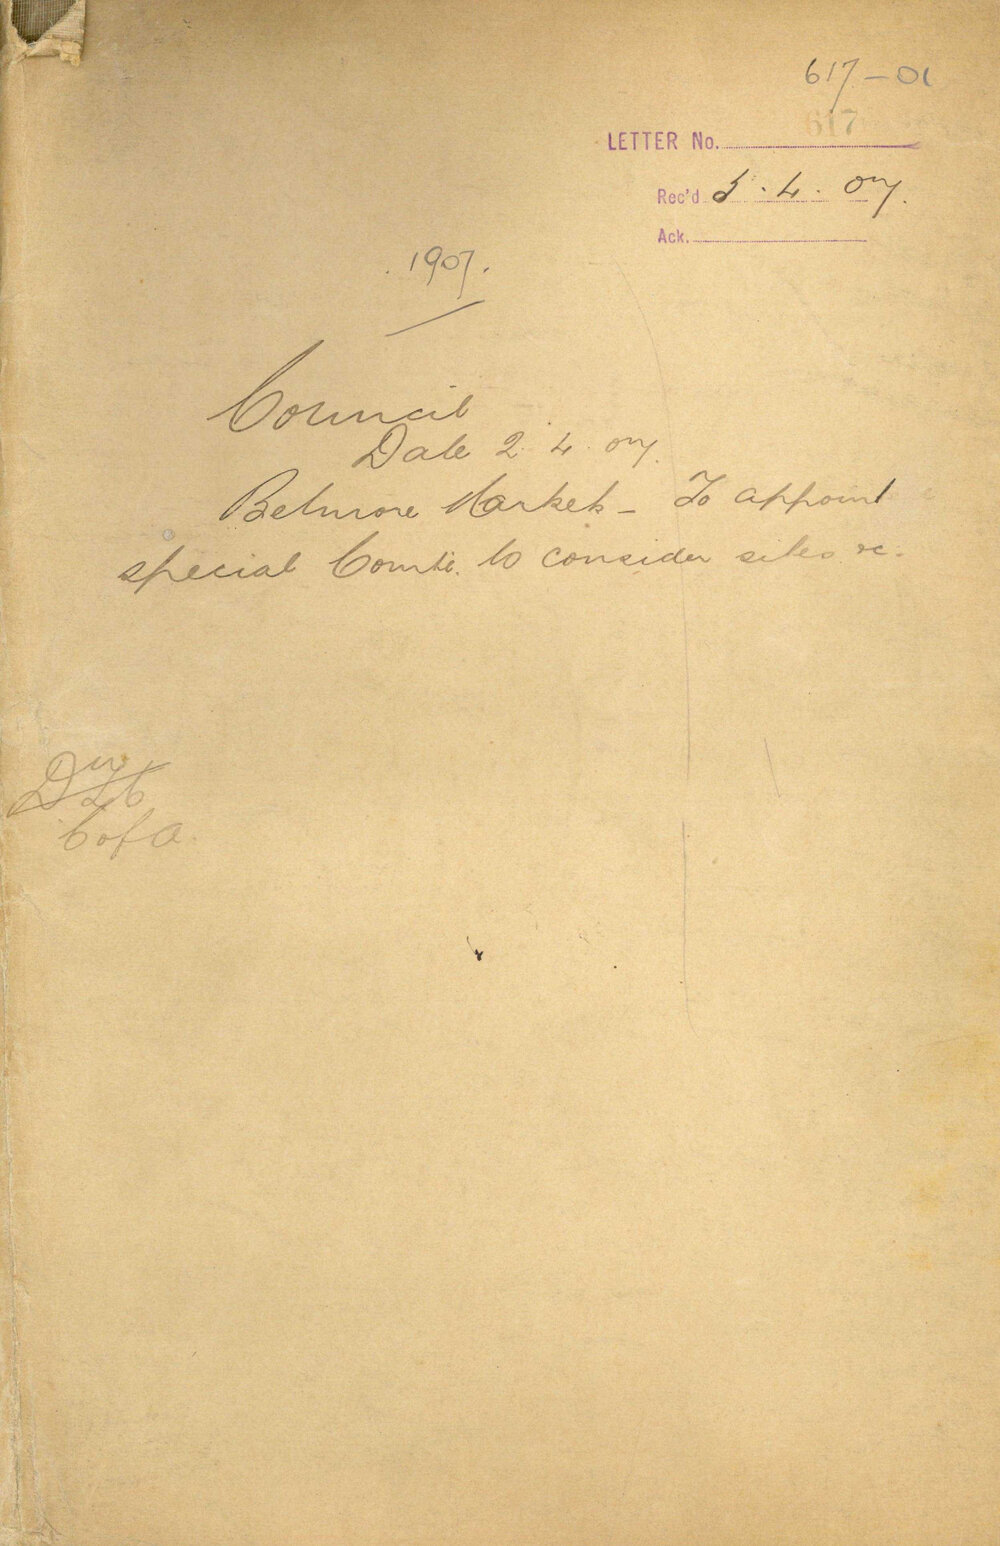 617-01
617
LETTER No.
Rec'd 5.4.07.
Ack.
1907.
Council
Date 2.4.07.
Belmore Markets - To appoint
special Comte. to consider sites &c.
C of A.